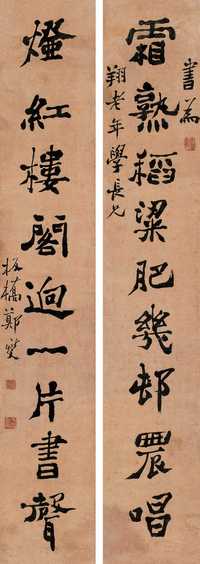 書為
霜熟稻粱肥幾邨農唱
翔老年學長兄
燈紅樓閣逈一片書聲
板橋鄭燮